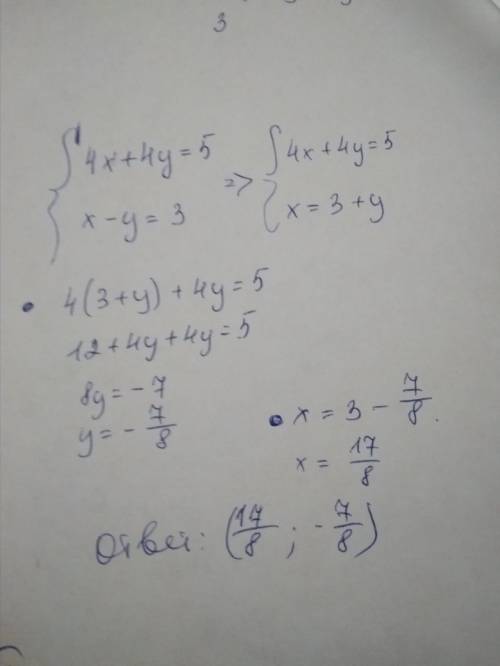 3
{ 4x+4y=5 => { 4x+4y=5
x-y=3 x=3+y
• 4(3+y)+4y=5
12+4y+4y=5
8y=-7
y=-7/8
• x=3-7/8.
x=17/8
Ответ: (17/8 ; -7/8)